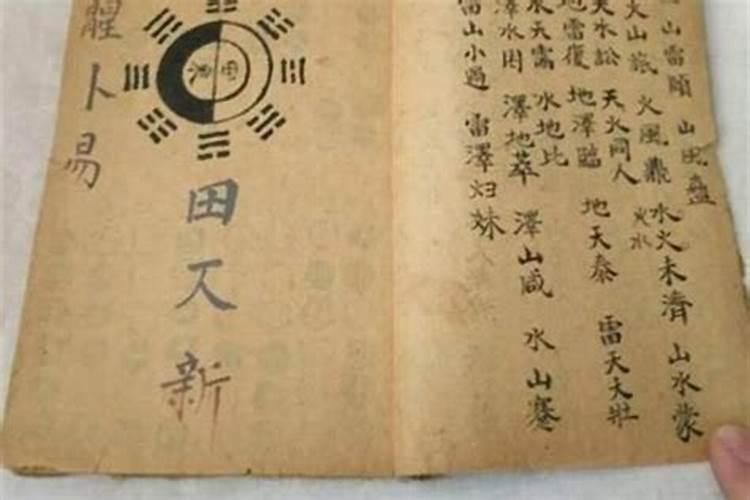 山雷頤 山風蠱
火山旅 火風鼎 水火未濟 山水蒙
火水
天水訟 天火同人
地雷復 地澤臨 地天泰 雷天天壯
水天需 水地比
澤水困 澤地萃 澤山咸 水山蹇
雷山小過 雷澤归妹
田
田 新
卜易